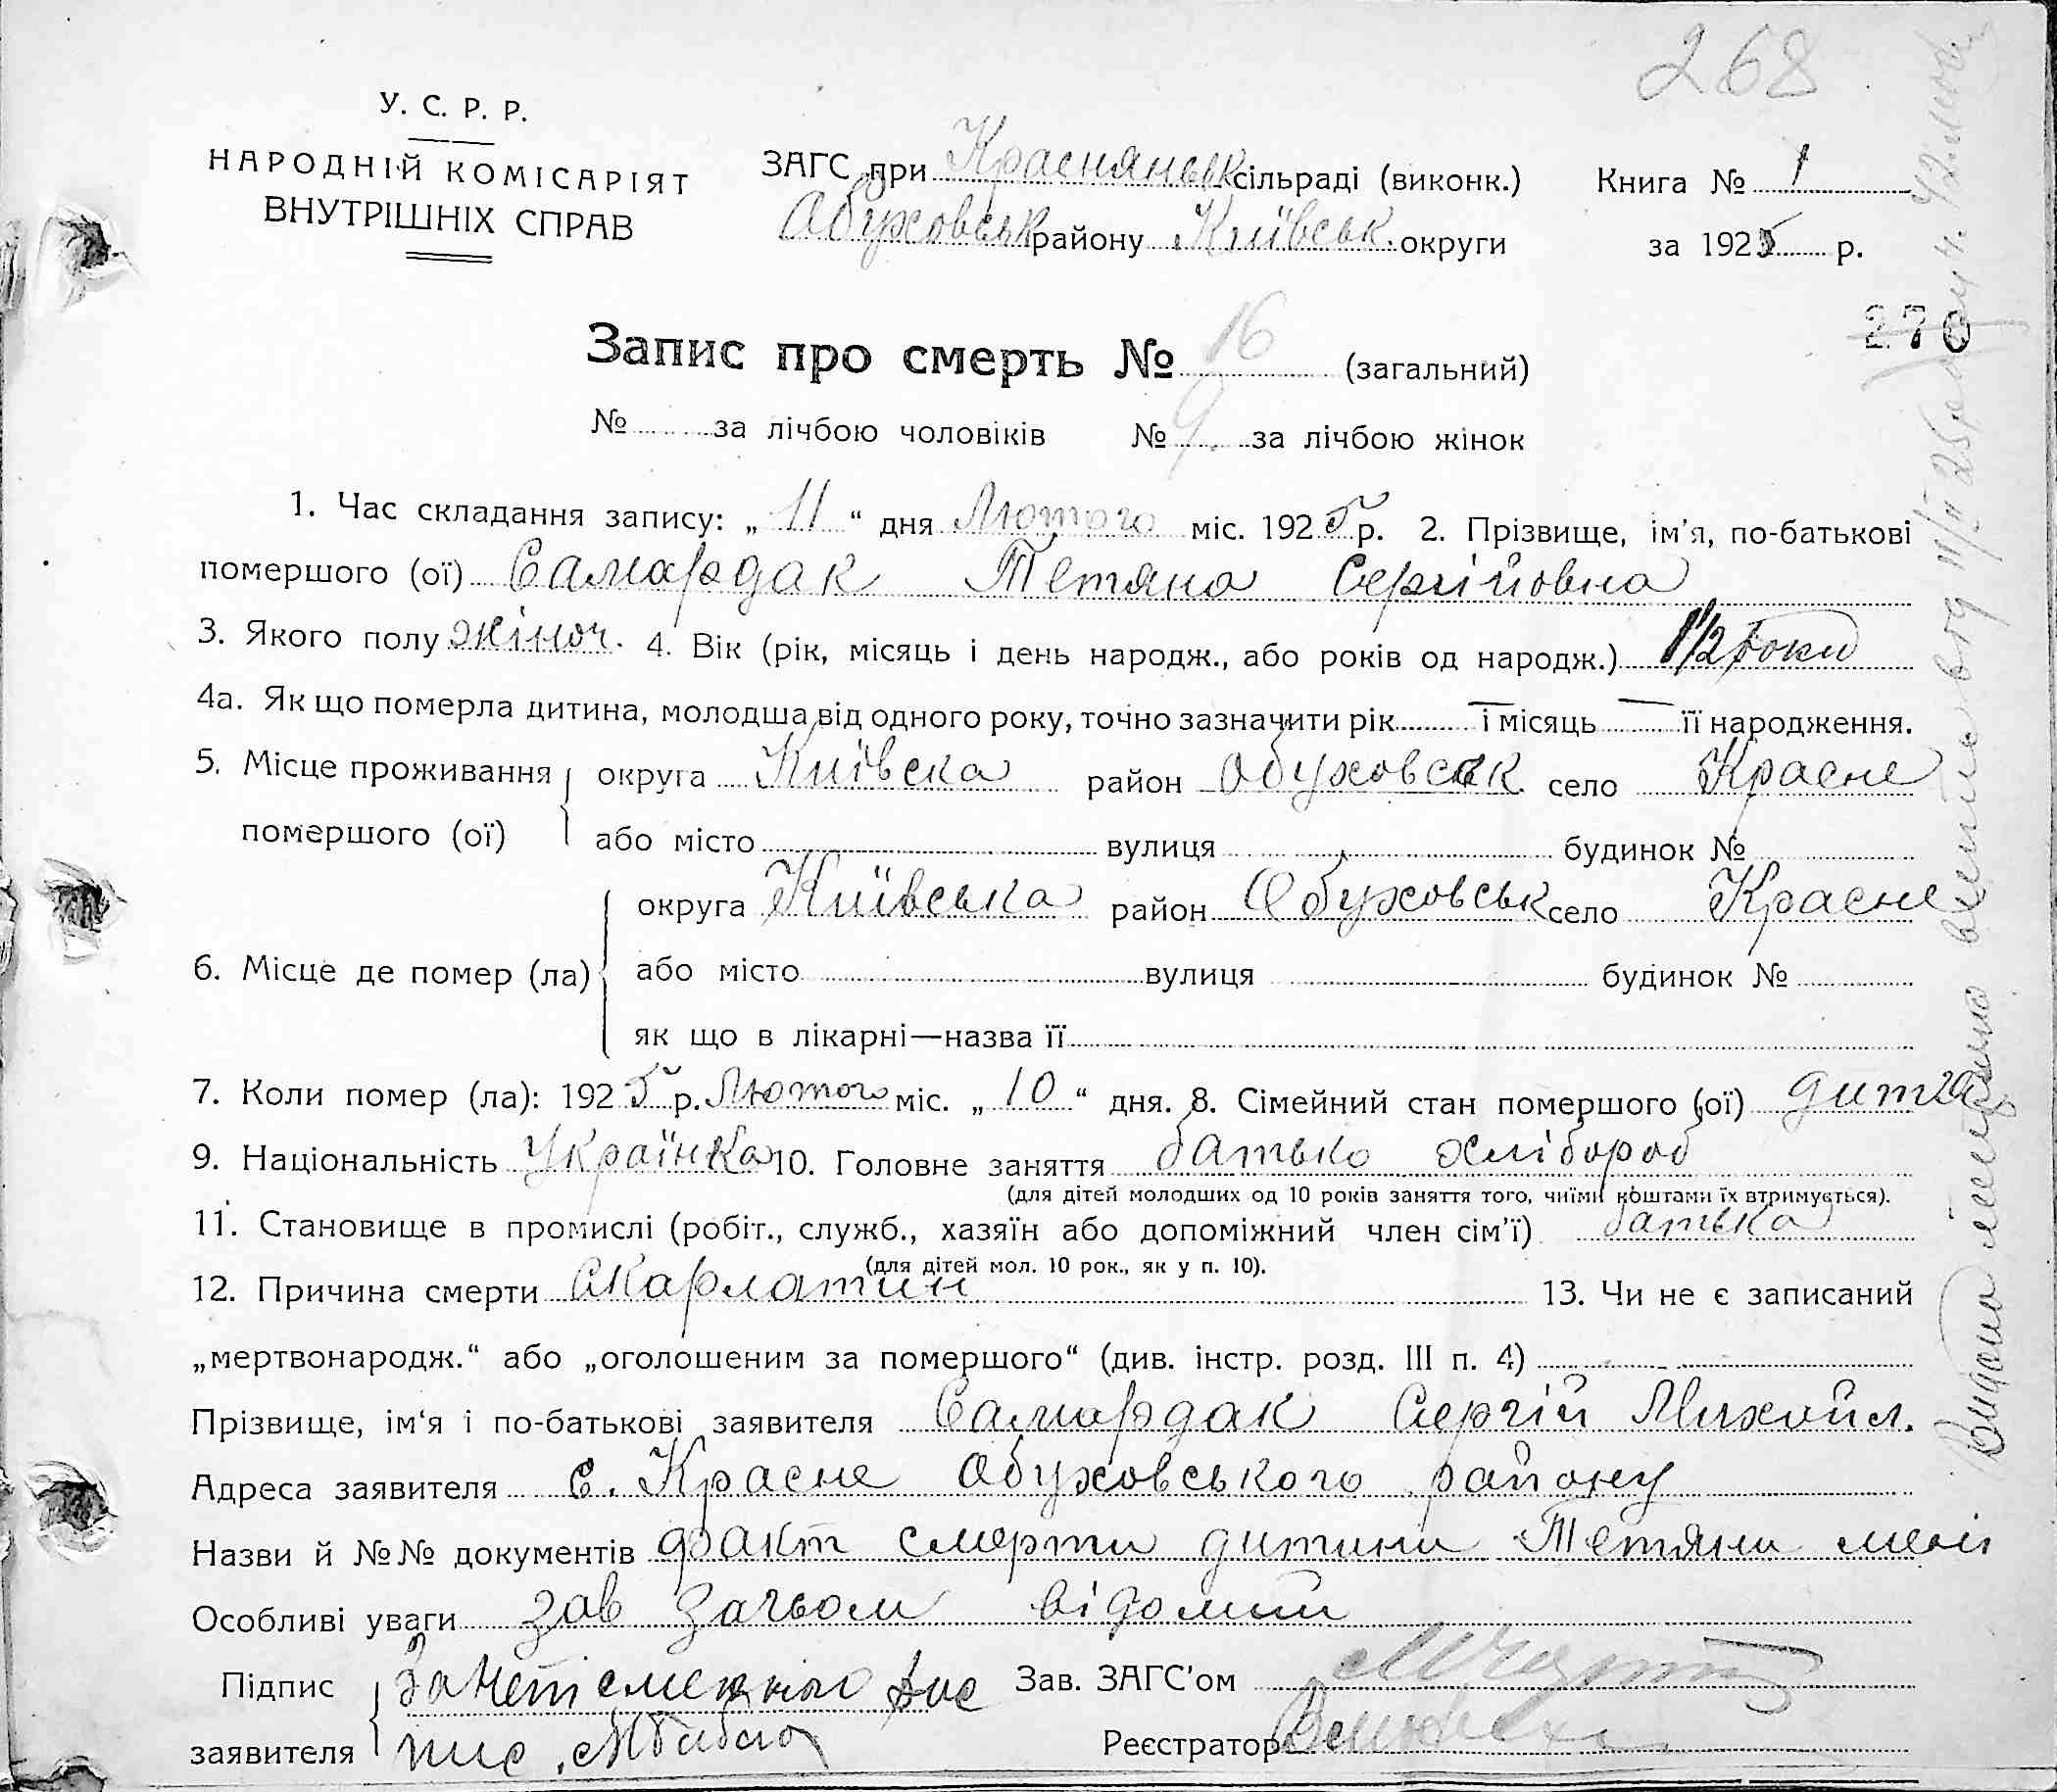 268
У. С. Р. Р.
НАРОДНІЙ КОМІСАРІЯТ
ВНУТРІШНІХ СПРАВ
ЗАГС при Краснянськ сільраді (виконк.)
Обуховськ району Київськ. округи
Книга № 1
за 1925 р.
270
Запис про смерть № 16 (загальний)
№ за лічбою чоловіків № 9 за лічбою жінок
1. Час складання запису: „ 11 “ дня Лютого міс. 1925 р. 2. Прізвище, ім'я, по-батькові
помершого (ої) Самардак Тетяна Сергійовна
3. Якого полу жіноч. 4. Вік (рік, місяць і день народж., або років од народж.) 1 1/2 роки
4а. Як що померла дитина, молодша від одного року, точно зазначити рік — і місяць — її народження.
5. Місце проживання округа Київска район Обуховськ село Красне
помершого (ої) або місто вулиця будинок №
округа Київська район Обуховськ село Красне
6. Місце де помер (ла) або місто вулиця будинок №
як що в лікарні—назва її
7. Коли помер (ла): 1925 р. Лютого міс. „ 10 “ дня. 8. Сімейний стан помершого (ої) дитя
9. Національність Українка 10. Головне заняття батько хлібороб
(для дітей молодших од 10 років заняття того, чиїми коштами їх втримується).
11. Становище в промислі (робіт., служб., хазяїн або допоміжний член сім'ї) батька
(для дітей мол. 10 рок., як у п. 10).
12. Причина смерти Скарлатин 13. Чи не є записаний
„мертвонародж.“ або „оголошеним за помершого“ (див. інстр. розд. III п. 4)
Прізвище, ім'я і по-батькові заявителя Самардак Сергій Михайл.
Адреса заявителя с. Красне Обуховського району
Назви й №№ документів факт смерти дитини Тетяни мені
Особливі уваги зав Загсом відомий
Підпис За неписьменного рос
заявителя пис.
Зав. ЗАГС'ом
Реєстратор
Видано